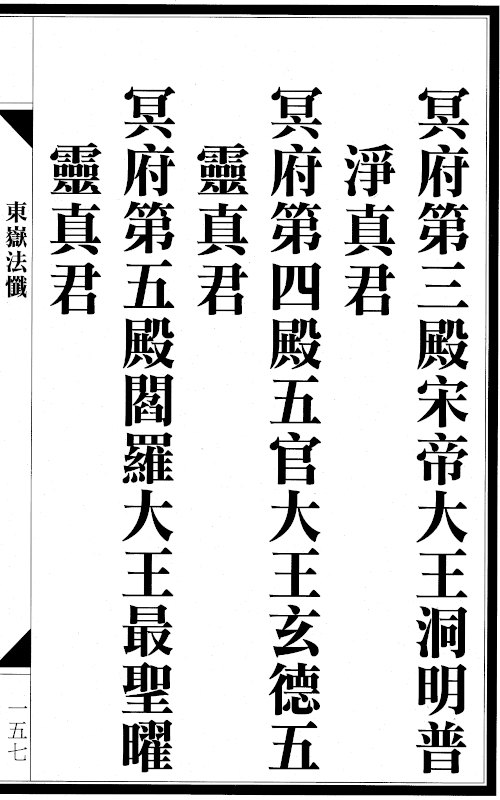 冥府第三殿宋帝大王洞明普
淨真君
冥府第四殿五官大王玄德五
靈真君
冥府第五殿閻羅大王最聖曜
靈真君
東嶽法懺
一五七